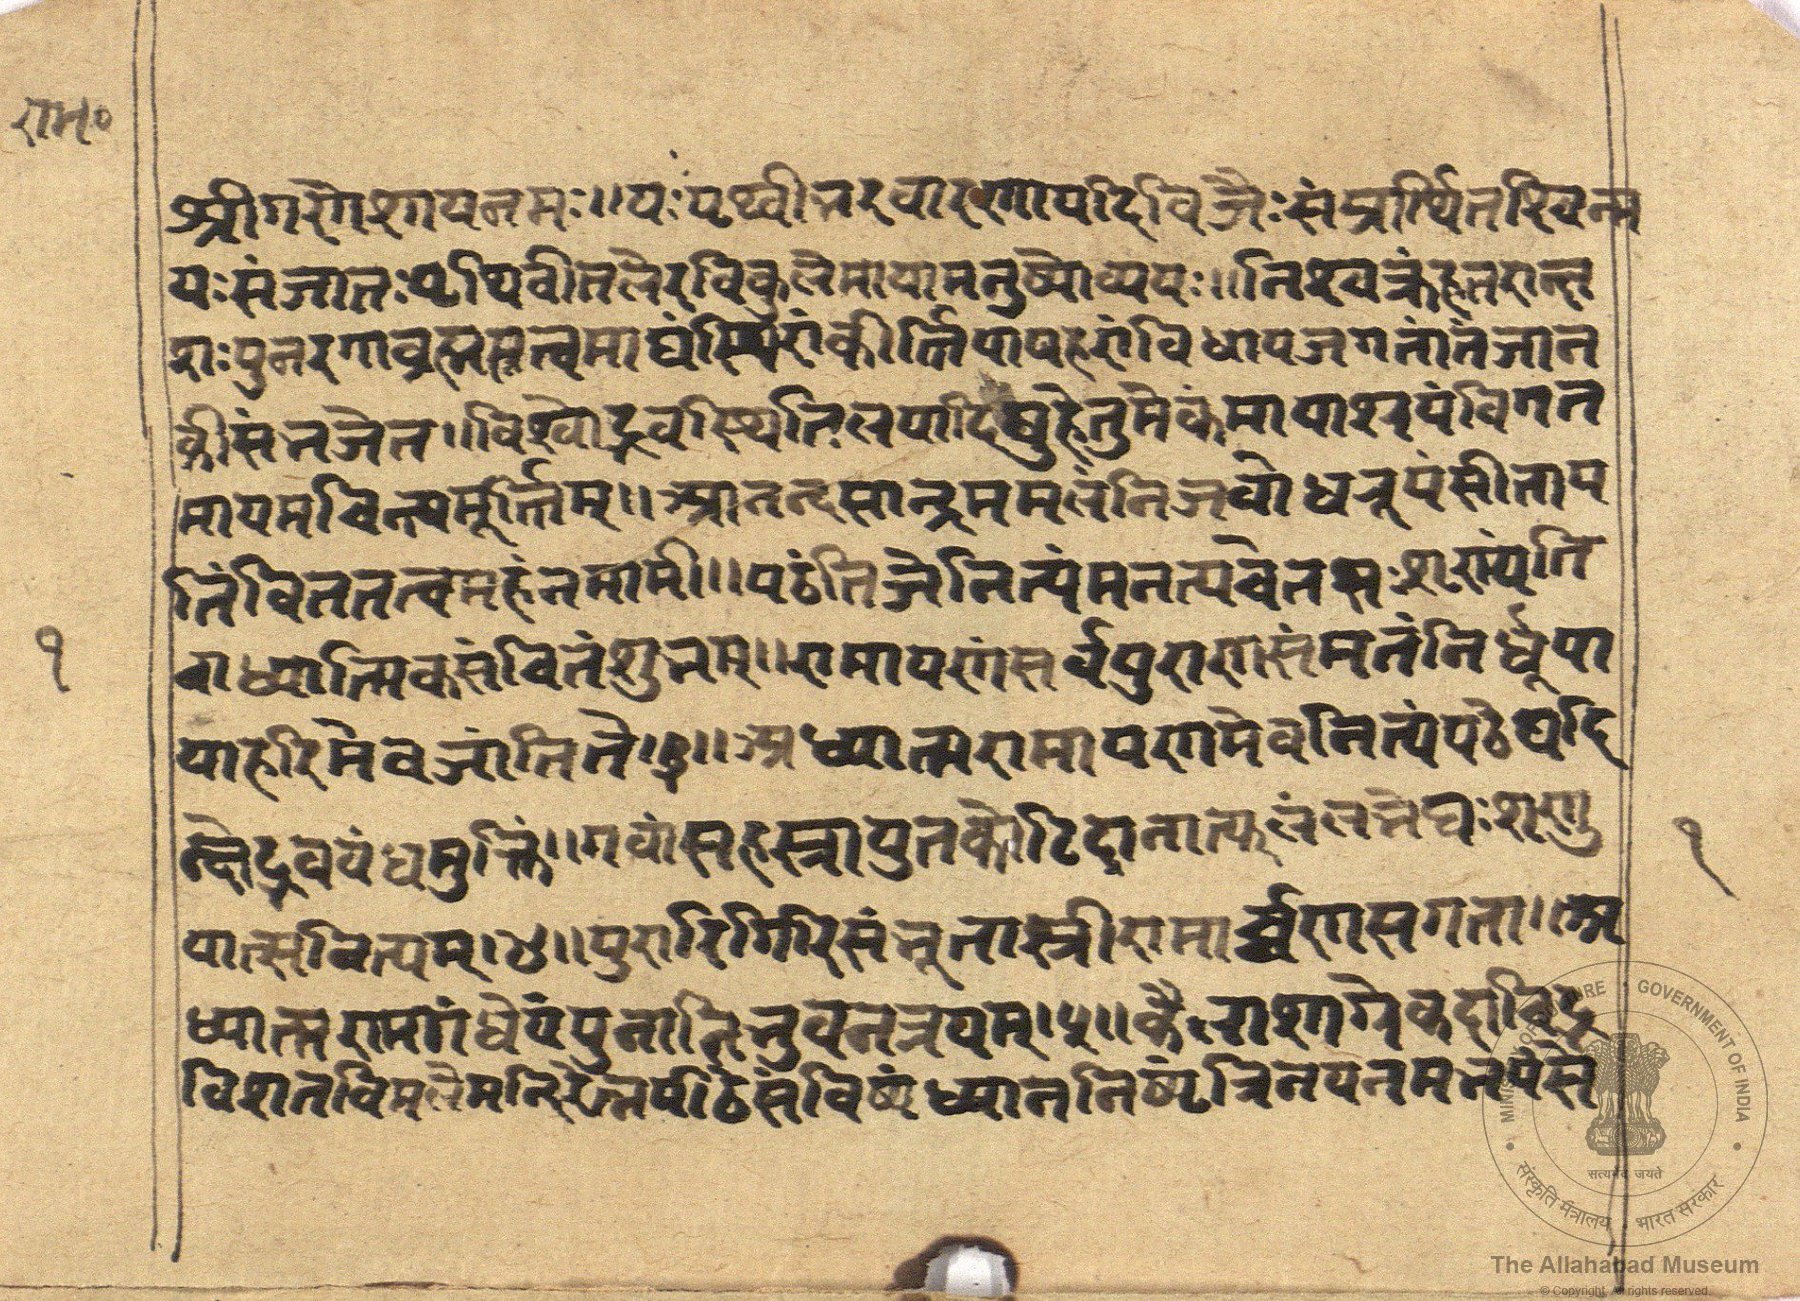 राम०
श्रीगणेशायनमः॥यःपृथ्वीभरवारणायदिविजैःसंप्रार्थितश्चिन्म
यःसंजातःपृथिवीतलेरविकुलेमायामनुष्योव्ययः॥निश्चक्रंहतराक्ष
सःपुनरगाद्ब्रह्मत्वमाद्यंस्थिरांकीर्त्तिंपापहरांविधायजगतांतंजान
कीसंभजेत॥विश्वोद्भवस्थितिलयादिषुहेतुमेकंमायाश्रयंविगत
मायमचिन्त्यमूर्त्तिम्॥आनन्दसान्द्रममलंनिजबोधरूपंसीताप
तिंविततत्वमहंनमामी॥पठंतिजेनित्यमनन्यचेतसःशृराम्यंति
चाध्यात्मिकसंचितंशुभम्॥रामायणंसर्वपुराणसंमतंनिर्धूपा
पाहरिमेवजांतिते।३॥अध्यात्मरामायणमेवनित्यंपठेद्यदि
च्छेद्भवबंधमुक्तिं॥गवांसहस्त्रायुतकोटिदानात्फलंलभेद्यःशृणु
यात्सनित्यम्।४॥पुरारिगिरिसंभूताश्रीरामार्ण्णवसंगता॥अ
ध्यात्मरामगंगेयंपुनातिभुवनत्रयम्।५॥कैलाशाग्रेकदाचिद्र
विशतविमलेमन्दिरेरत्नपीठेसंविष्टंध्याननिष्टंत्रिनयनमभयंसे
१
१
MINISTRY OF CULTURE • GOVERNMENT OF INDIA
सत्यमेव जयते
संस्कृति मंत्रालय • भारत सरकार
The Allahabad Museum
© Copyright. All rights reserved.